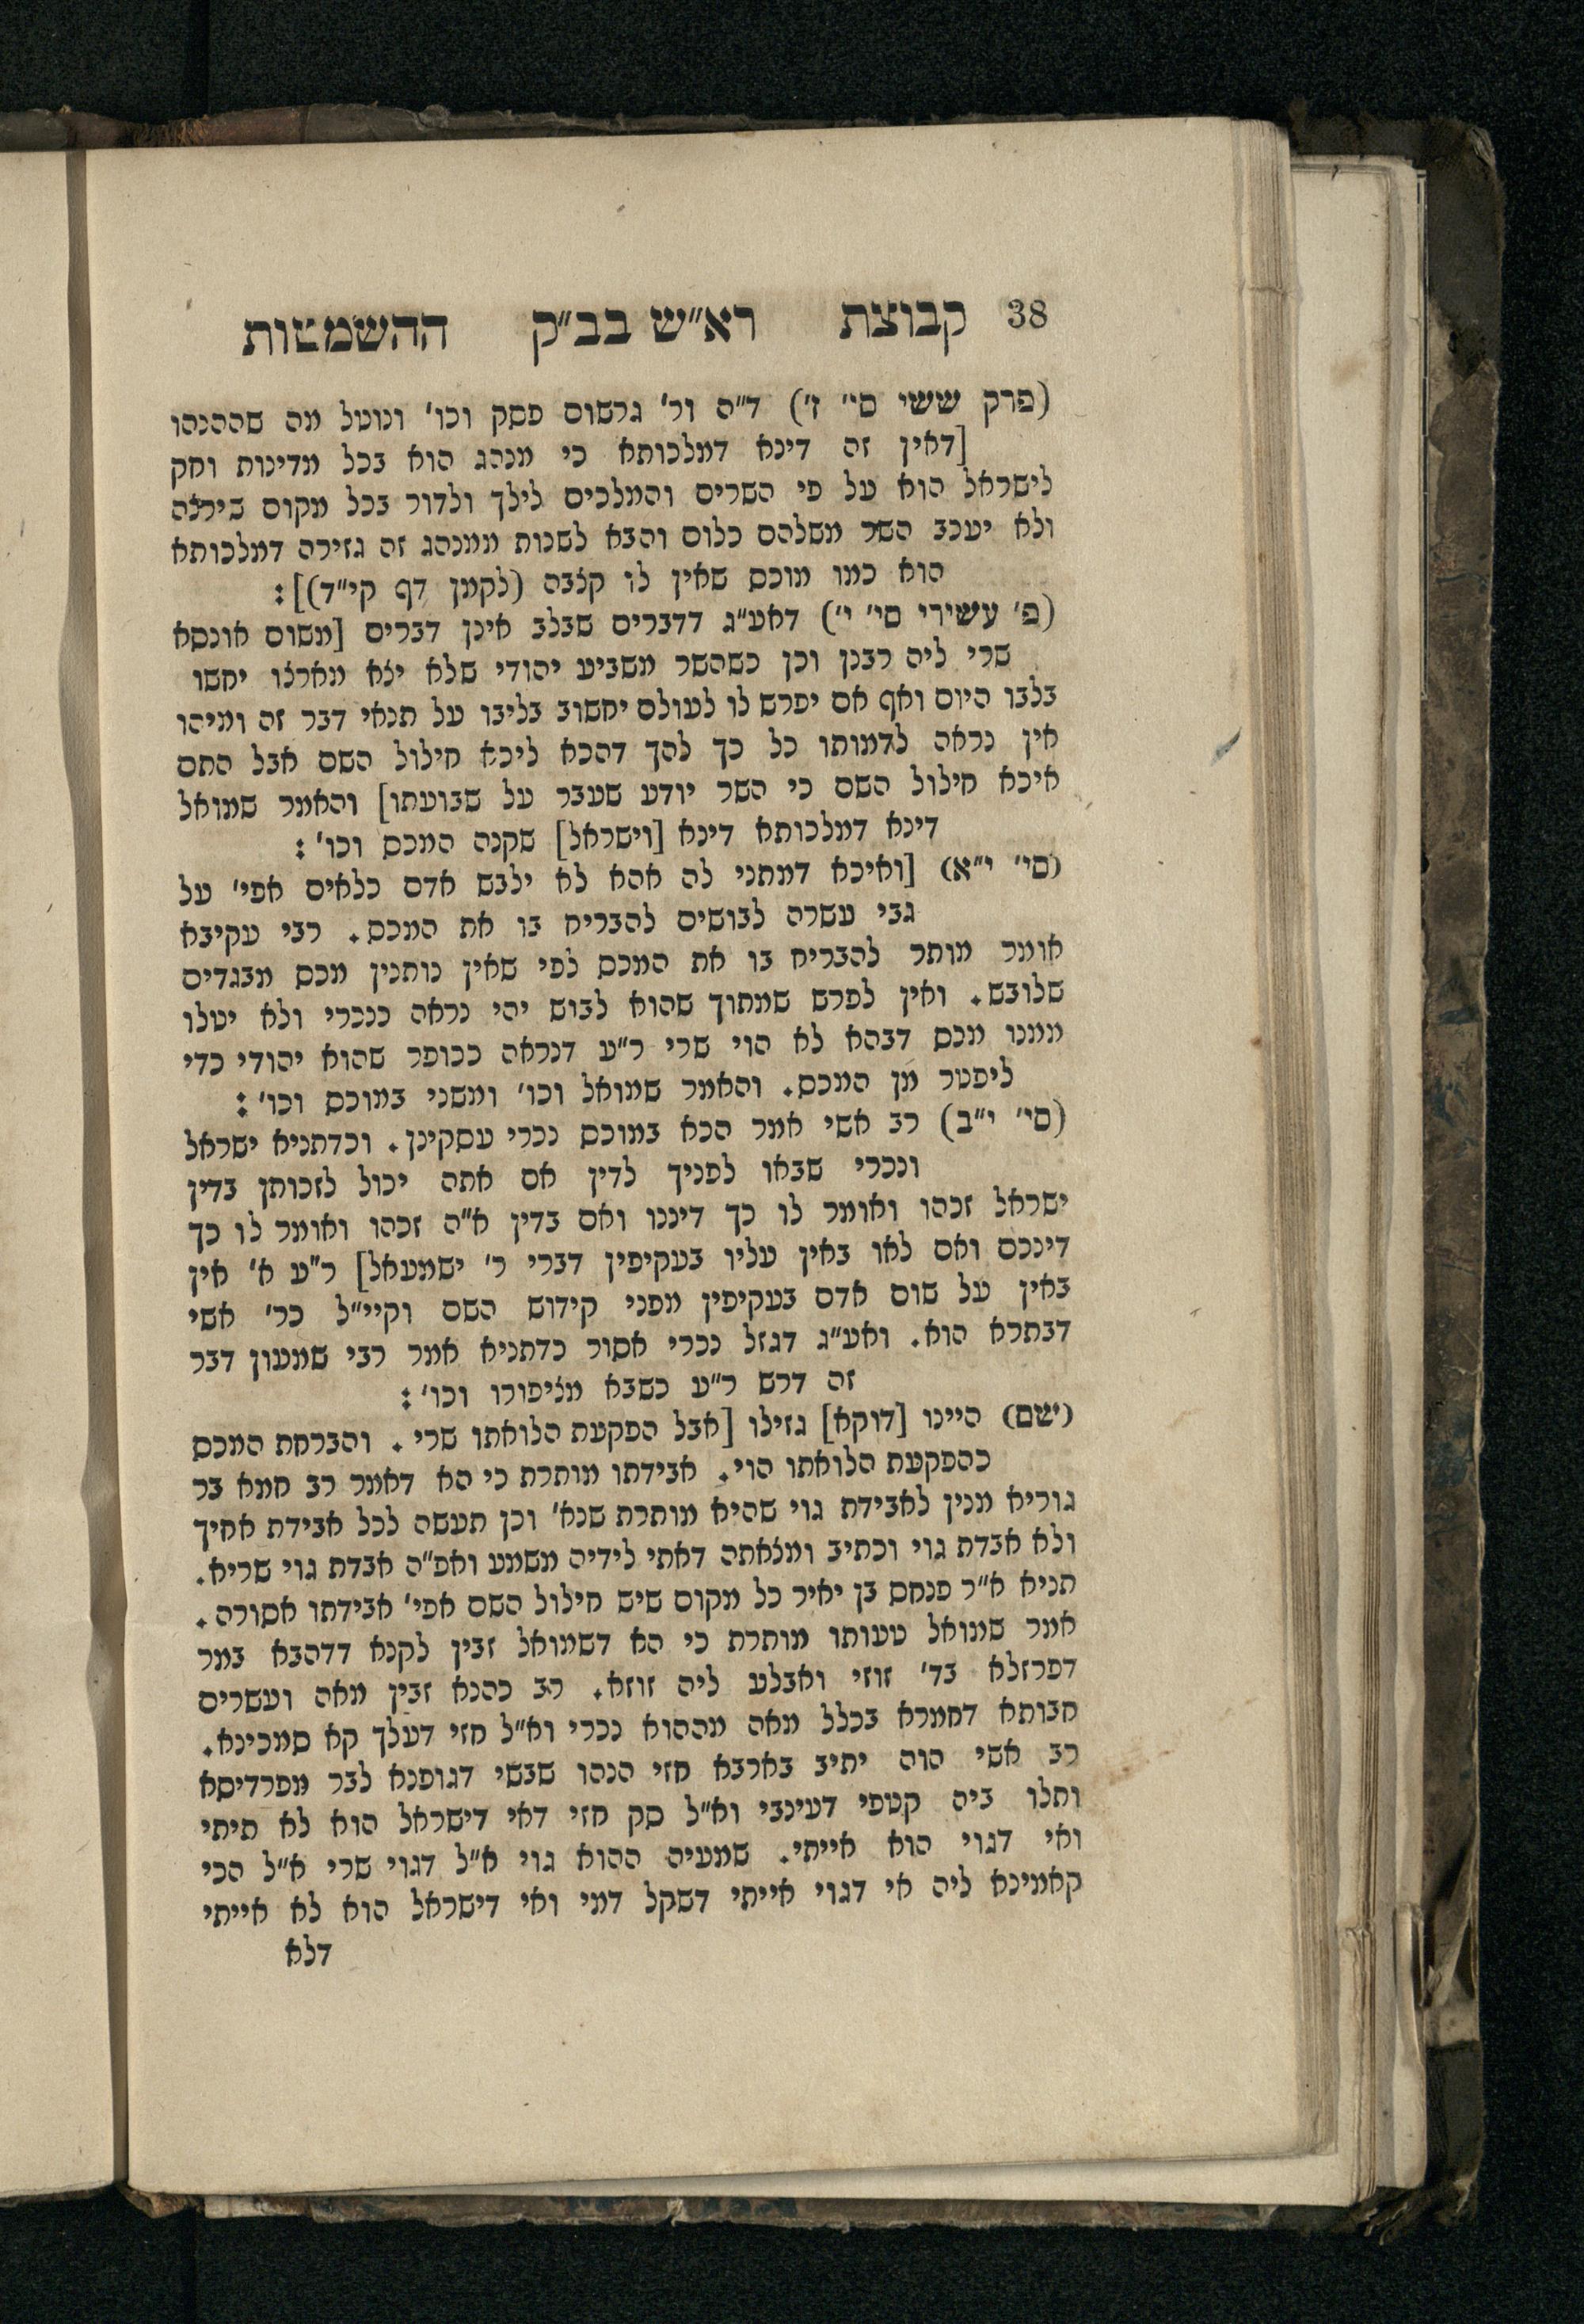 38 קבוצת רא"ש בב"ק ההשמטות
(פרק ששי סי' ז') ד"ה ור' גרשום פסק וכו' ונוטל מה שההנהו
[דאין זה דינא דמלכותא כי מנהג הוא בכל מדינות וחק
לישראל הוא על פי השרים והמלכים לילך ולדור בכל מקום שירצה
ולא יעכב השר משלהם כלום והבא לשנות ממנהג זה גזירה דמלכותא
הוא כמו מוכס שאין לו קצבה (לקמן דף קי"ד)]:
(פ' עשירי סי' י') דאע"ג דדברים שבלב אינן דברים [משום אונסא
שרי ליה רבנן וכן כשהשר משביע יהודי שלא יצא מארצו יחשו
בלבו היום ואף אם יפרש לו לעולם יחשוב בליבו על תנאי דבר זה ומיהו
אין נראה לדמותו כל כך להך דהכא ליכא חילול השם אבל התם
איכא חילול השם כי השר יודע שעבר על שבועתו] והאמר שמואל
דינא דמלכותא דינא [וישראל] שקנה המכס וכו':
(סי' י"א) [ואיכא דמתני לה אהא לא ילבש אדם כלאים אפי' על
גבי עשרה לבושים להבריח בו את המכס. רבי עקיבא
אומר מותר להבריח בו את המכס לפי שאין נותנין מכס מבגדים
שלובש. ואין לפרש שמתוך שהוא לבוש יהי נראה כנכרי ולא יטלו
ממנו מכס דבהא לא הוי שרי ר"ע דנראה ככופר שהוא יהודי כדי
ליפטר מן המכס. והאמר שמואל וכו' ומשני במוכס וכו':
(סי' י"ב) רב אשי אמר הכא במוכס נכרי עסקינן. וכדתניא ישראל
ונכרי שבאו לפניך לדין אם אתה יכול לזכותן בדין
ישראל זכהו ואומר לו כך דיננו ואם בדין א"ה זכהו ואומר לו כך
דינכם ואם לאו באין עליו בעקיפין דברי ר' ישמעאל] ר"ע א' אין
באין על שום אדם בעקיפין מפני קידוש השם וקיי"ל כר' אשי
דבתרא הוא. ואע"ג דגזל נכרי אסור כדתניא אמר רבי שמעון דבר
זה דרש ר"ע כשבא מזיפורו וכו':
(שם) היינו [דוקא] גזילו [אבל הפקעת הלואתו שרי. והברחת המכס
כהפקעת הלואתו הוי. אבידתו מותרת כי הא דאמר רב חמא בר
גוריא מנין לאבידת גוי שהיא מותרת שנא' וכן תעשה לכל אבידת אחיך
ולא אבדת גוי וכתיב ומצאתה דאתי לידיה משמע ואפ"ה אבדת גוי שריא.
תניא א"ר פנחס בן יאיר כל מקום שיש חילול השם אפי' אבידתו אסורה.
אמר שמואל טעותו מותרת כי הא דשמואל זבין לקנא דדהבא במר
דפרזלא בד' זוזי ואבלע ליה זוזא. רב כהנא זבין מאה ועשרים
חבותא דחמרא בכלל מאה מההוא נכרי וא"ל חזי דעלך קא סמכינא.
רב אשי הוה יתיב בארבא חזי הנהו שבשי דגופנא לבר מפרדיסא
ותלו ביה קטפי דעינבי וא"ל סק חזי דאי דישראל הוא לא תיתי
ואי דגוי הוא אייתי. שמעיה ההוא גוי א"ל דגוי שרי א"ל הכי
קאמינא ליה אי דגוי אייתי דשקל דמי ואי דישראל הוא לא אייתי
דלא